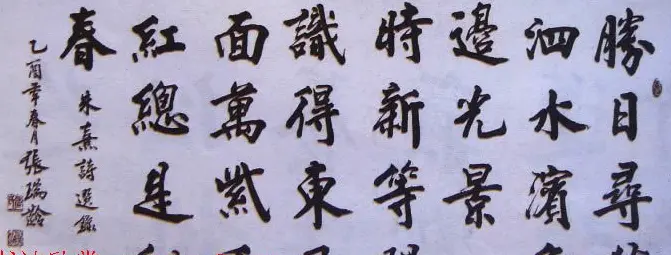 勝日尋
泗水濱
邊光景
時新等
識得東
面萬紫
紅總是
春
朱熹詩選錄
乙酉年春月張瑞齡